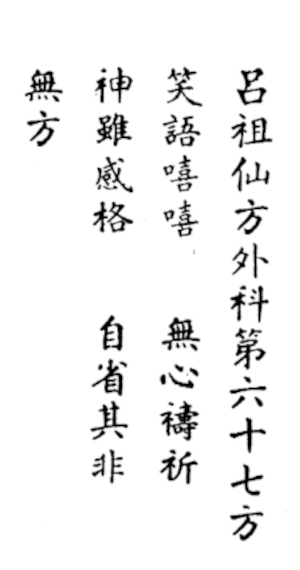 呂祖仙方外科第六十七方
笑語嘻嘻　無心禱祈
神雖感格　自省其非
無方